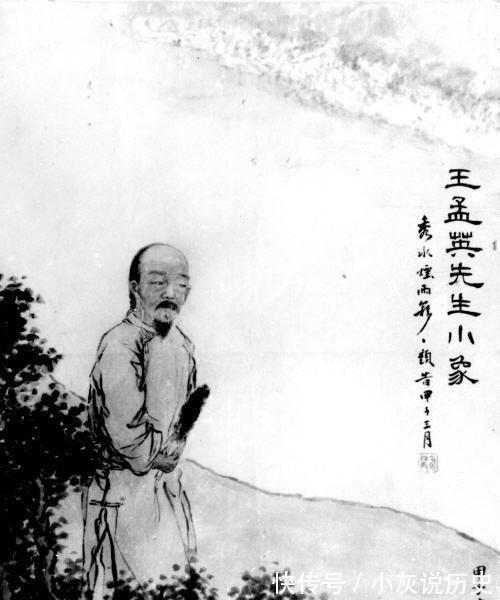 王孟英先生小象
秀水煙雨
題 時甲子三月
快传号／小灰说历史